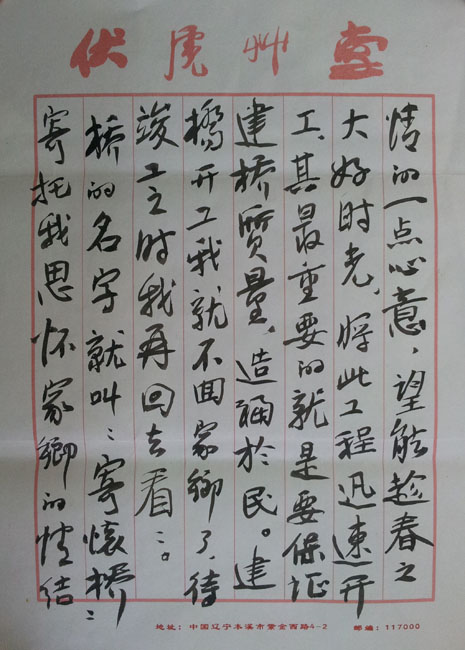 伏虎艸堂
情的一点心意，望能趁春之
大好时光，将此工程迅速开
工，其最重要的就是要保证
建桥質量，造福於民。建
橋开工我就不回家鄉了，待
竣工之时我再回去看：。
桥的名字就叫：寄懷橋：
寄托我思怀家鄉的情结
地址：中国辽宁本溪市紫金西路4-2 邮编：117000